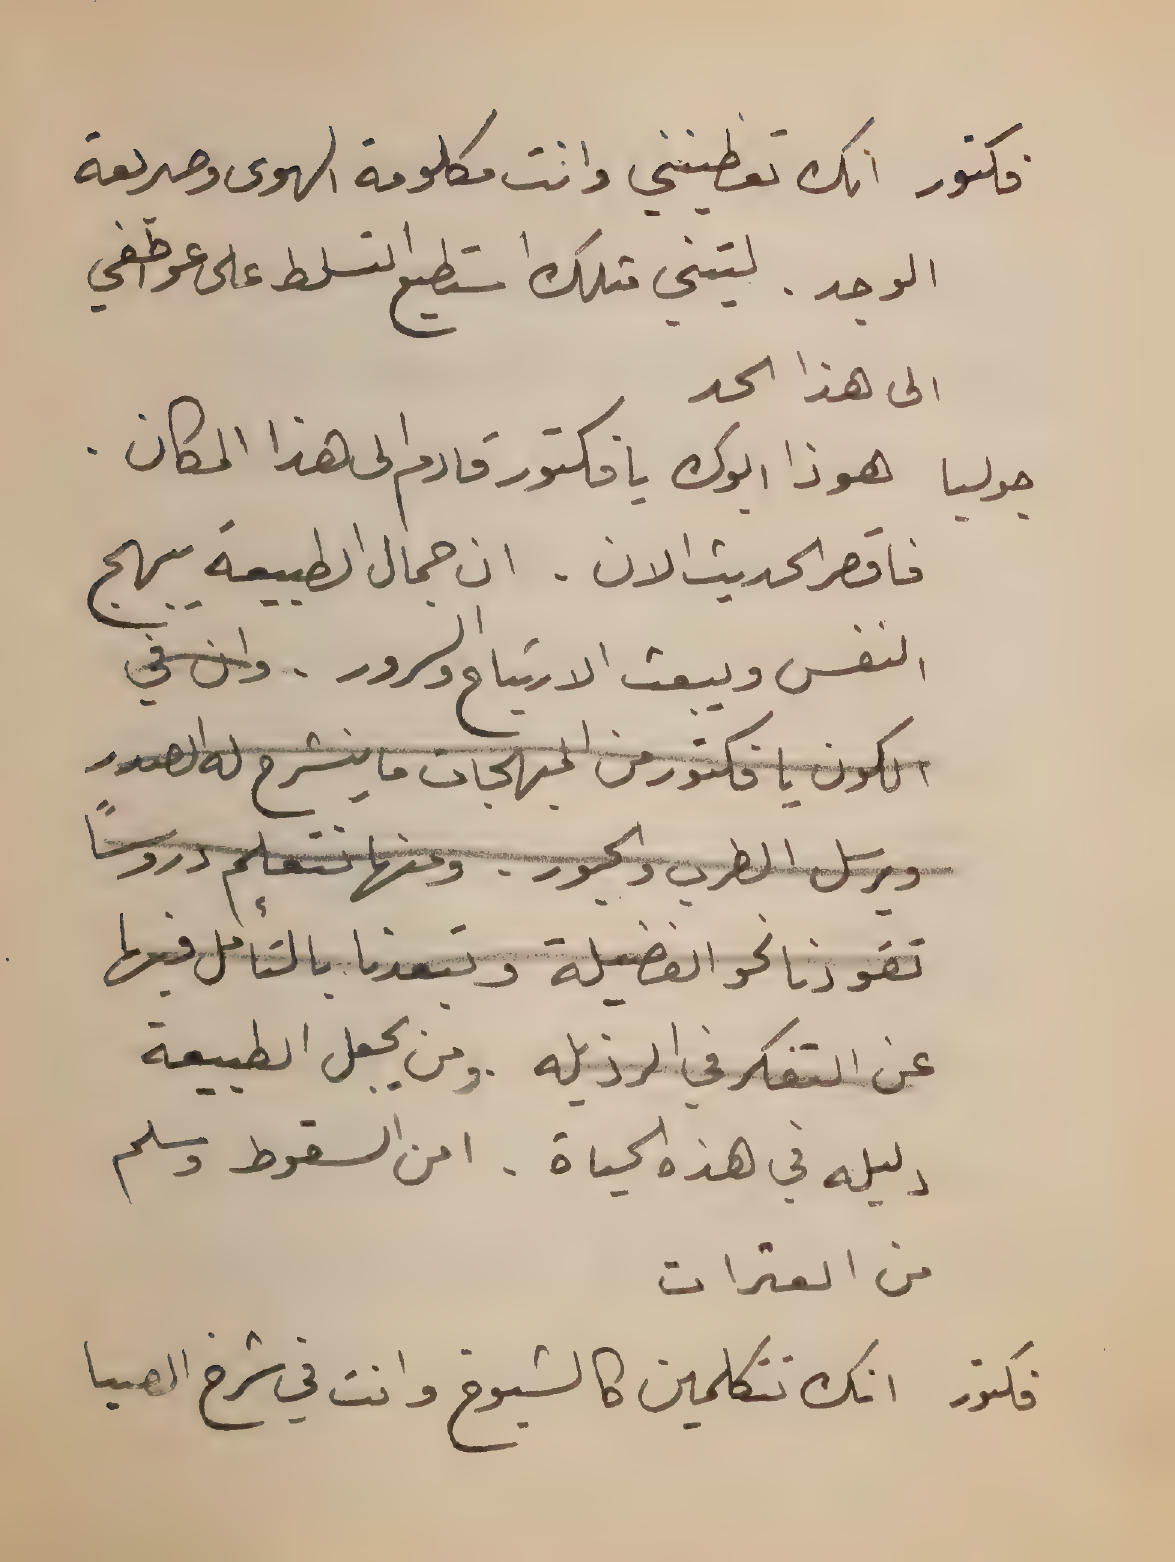 فكتور انك تعظينني وانت مكلومة الهوى وصريعة
الوجد . ليتني مثلك استطيع التسلط على عواطفي
الى هذا الحد
جوليا هوذا ابوك يا فكتور قادم الى هذا المكان .
فاقصر الحديث الان . ان جمال الطبيعة يبهج
النفس ويبعث الارتياح والسرور . وان في
الكون يا فكتور من المبهجات ما ينشرح له الصدر
ويرسل الطرب والحبور . ومنها نتعلم دروساً
تقودنا نحو الفضيلة وتبعدنا بالتأمل فيها
عن التفكر في الرذيله . ومن يجعل الطبيعة
دليله في هذه الحياة . امن السقوط وسلم
من العثرات
فكتور انك تتكلمين كالشيوخ وانت في شرخ الصبا